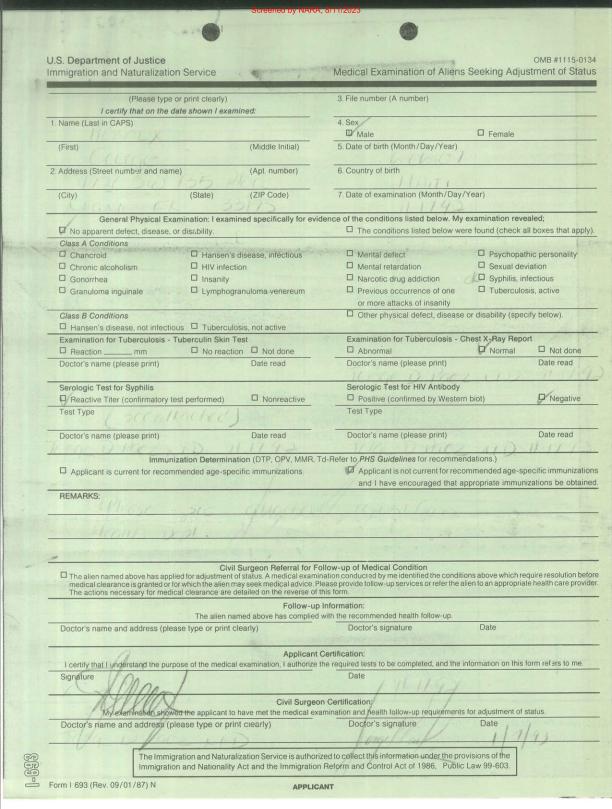 Screened by NARA, 8/11/2023
U.S. Department of Justice
Immigration and Naturalization Service
OMB #1115-0134
Medical Examination of Aliens Seeking Adjustment of Status
(Please type or print clearly)
I certify that on the date shown I examined:
3. File number (A number)
1. Name (Last in CAPS)
4. Sex
☑ Male ☐ Female
(First) (Middle Initial)
5. Date of birth (Month/Day/Year)
2. Address (Street number and name) (Apt. number)
6. Country of birth
(City) (State) (ZIP Code)
7. Date of examination (Month/Day/Year)
General Physical Examination: I examined specifically for evidence of the conditions listed below. My examination revealed;
☑ No apparent defect, disease, or disability.
☐ The conditions listed below were found (check all boxes that apply).
Class A Conditions
☐ Chancroid ☐ Hansen's disease, infectious ☐ Mental defect ☐ Psychopathic personality
☐ Chronic alcoholism ☐ HIV infection ☐ Mental retardation ☐ Sexual deviation
☐ Gonorrhea ☐ Insanity ☐ Narcotic drug addiction ☐ Syphilis, infectious
☐ Granuloma inguinale ☐ Lymphogranuloma venereum ☐ Previous occurrence of one ☐ Tuberculosis, active
or more attacks of insanity
Class B Conditions
☐ Other physical defect, disease or disability (specify below).
☐ Hansen's disease, not infectious ☐ Tuberculosis, not active
Examination for Tuberculosis - Tuberculin Skin Test
☐ Reaction ______ mm ☐ No reaction ☐ Not done
Doctor's name (please print) Date read
Examination for Tuberculosis - Chest X-Ray Report
☐ Abnormal ☑ Normal ☐ Not done
Doctor's name (please print) Date read
Serologic Test for Syphilis
☑ Reactive Titer (confirmatory test performed) ☐ Nonreactive
Test Type
Doctor's name (please print) Date read
Serologic Test for HIV Antibody
☐ Positive (confirmed by Western blot) ☑ Negative
Test Type
Doctor's name (please print) Date read
Immunization Determination (DTP, OPV, MMR, Td-Refer to PHS Guidelines for recommendations.)
☐ Applicant is current for recommended age-specific immunizations
☑ Applicant is not current for recommended age-specific immunizations
and I have encouraged that appropriate immunizations be obtained.
REMARKS:
Civil Surgeon Referral for Follow-up of Medical Condition
☐ The alien named above has applied for adjustment of status. A medical examination conducted by me identified the conditions above which require resolution before
medical clearance is granted or for which the alien may seek medical advice. Please provide follow-up services or refer the alien to an appropriate health care provider.
The actions necessary for medical clearance are detailed on the reverse of this form.
Follow-up Information:
The alien named above has complied with the recommended health follow-up.
Doctor's name and address (please type or print clearly) Doctor's signature Date
Applicant Certification:
I certify that I understand the purpose of the medical examination, I authorize the required tests to be completed, and the information on this form refers to me.
Signature Date
Civil Surgeon Certification:
My examination showed the applicant to have met the medical examination and health follow-up requirements for adjustment of status.
Doctor's name and address (please type or print clearly) Doctor's signature Date
The Immigration and Naturalization Service is authorized to collect this information under the provisions of the
Immigration and Nationality Act and the Immigration Reform and Control Act of 1986, Public Law 99-603.
Form I 693 (Rev. 09/01/87) N
APPLICANT